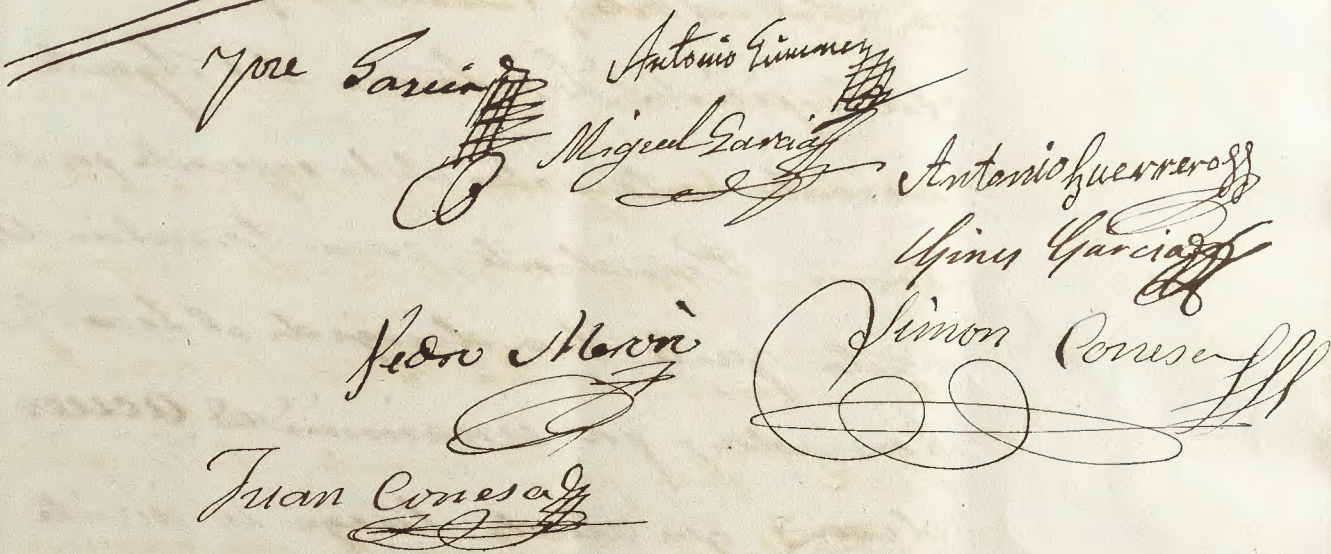 Jose Garcia
Antonio Gimenez
Miguel Garcia
Antonio Guerrero
Gines Garcia
Pedro
Simon Conesa
Juan Conesa